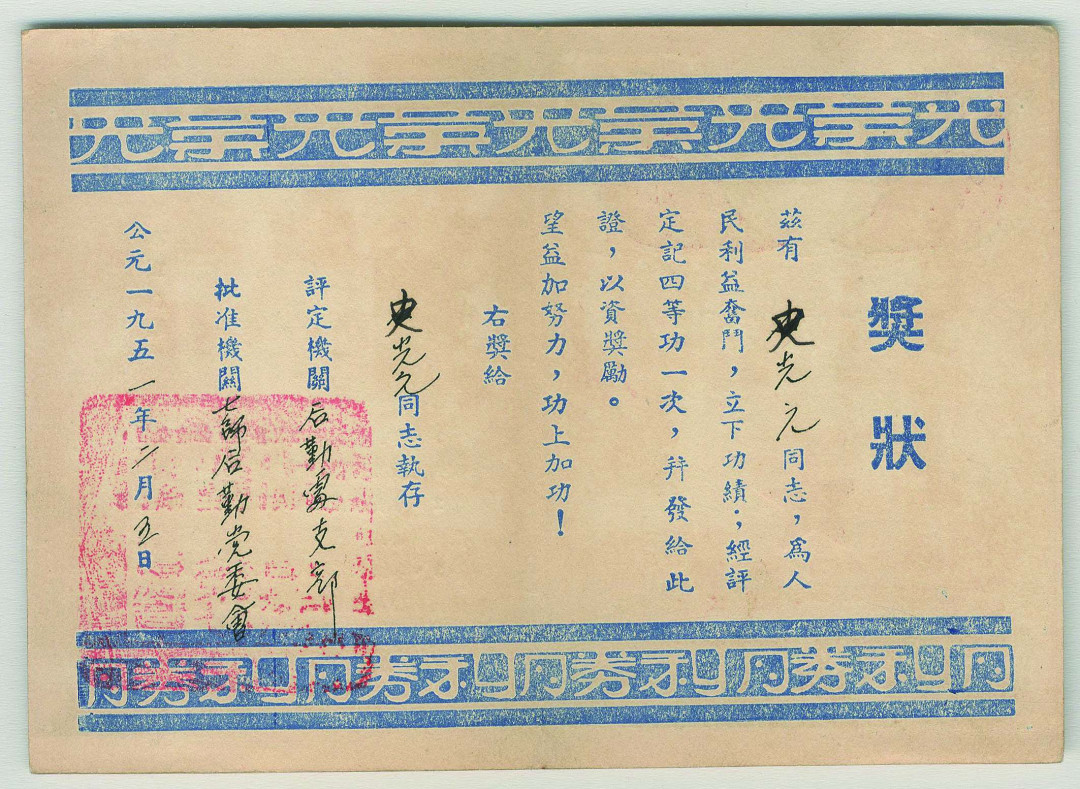 光荣光荣光荣光荣光
獎狀
茲有 史光元同志，爲人
民利益奮鬥，立下功績；經評
定記四等功一次，幷發給此
證，以資獎勵。
望益加努力，功上加功！
右獎給
史光元同志執存
評定機關 后勤處支部
批准機關 七師后勤党委會
公元一九五一年二月五日
勝利勝利勝利勝利